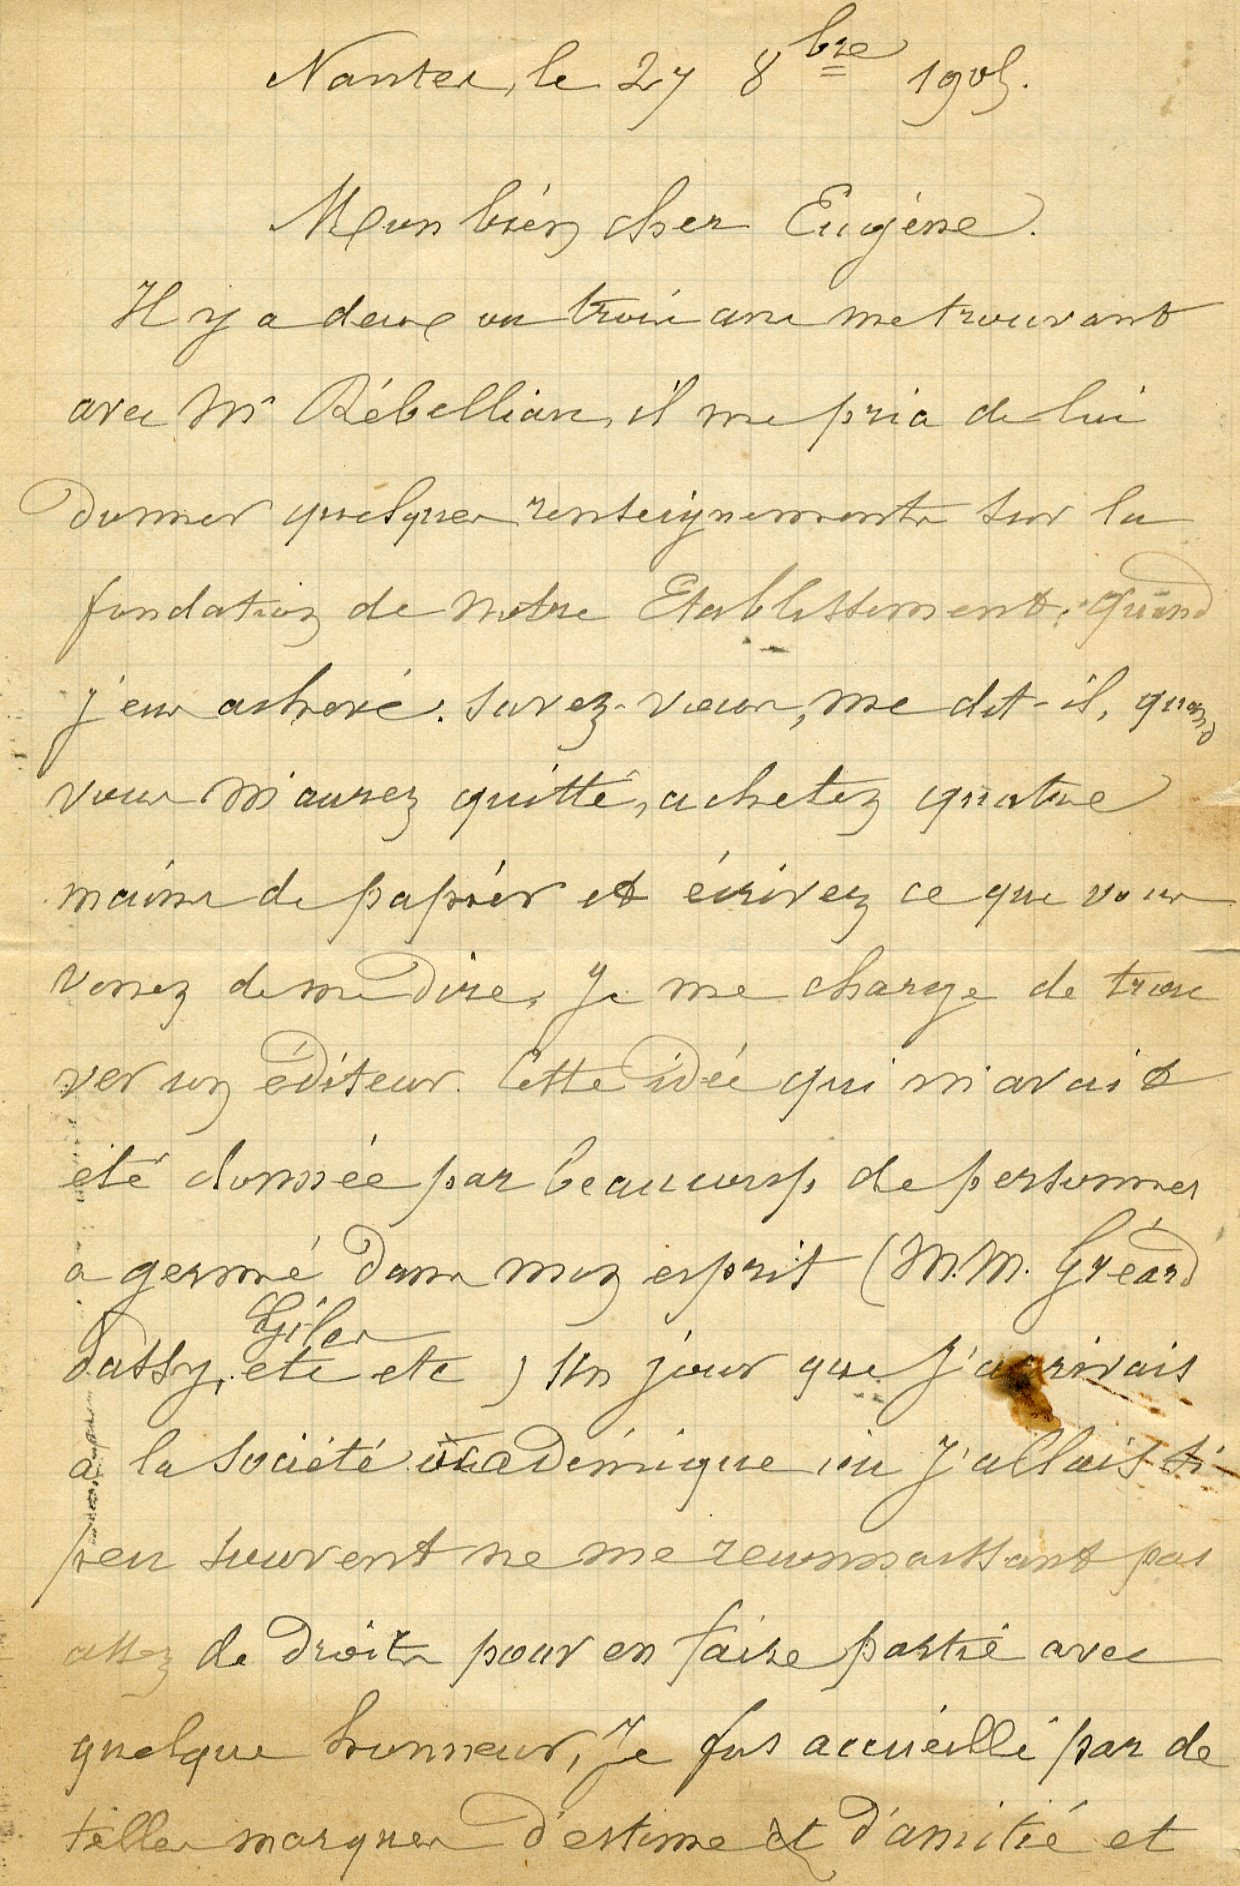 Nantes, le 27 8bre 1905.
Mon bien cher Eugène.
Il y a deux ou trois ans me trouvant
avec Mr Rébelliau, il me pria de lui
donner quelques renseignements sur la
fondation de notre Etablissement. quand
j'eus achevé. savez-vous, me dit-il, quand
vous m'aurez quitté, achetez quatre
mains de papier et écrivez ce que vous
venez de me dire, Je me charge de trou
ver un éditeur. Cette idée qui m'avait
été donnée par beaucoup de personnes
a germé dans mon esprit (M.M. Gréard
Giles
Dassy, etc etc) Un jour que j'arrivais
à la Société académique où j'allais si
peu souvent ne me reconnaissant pas
assez de droits pour en faire partie avec
quelque honneur, Je fus accueilli par de
telles marques d'estime et d'amitié et